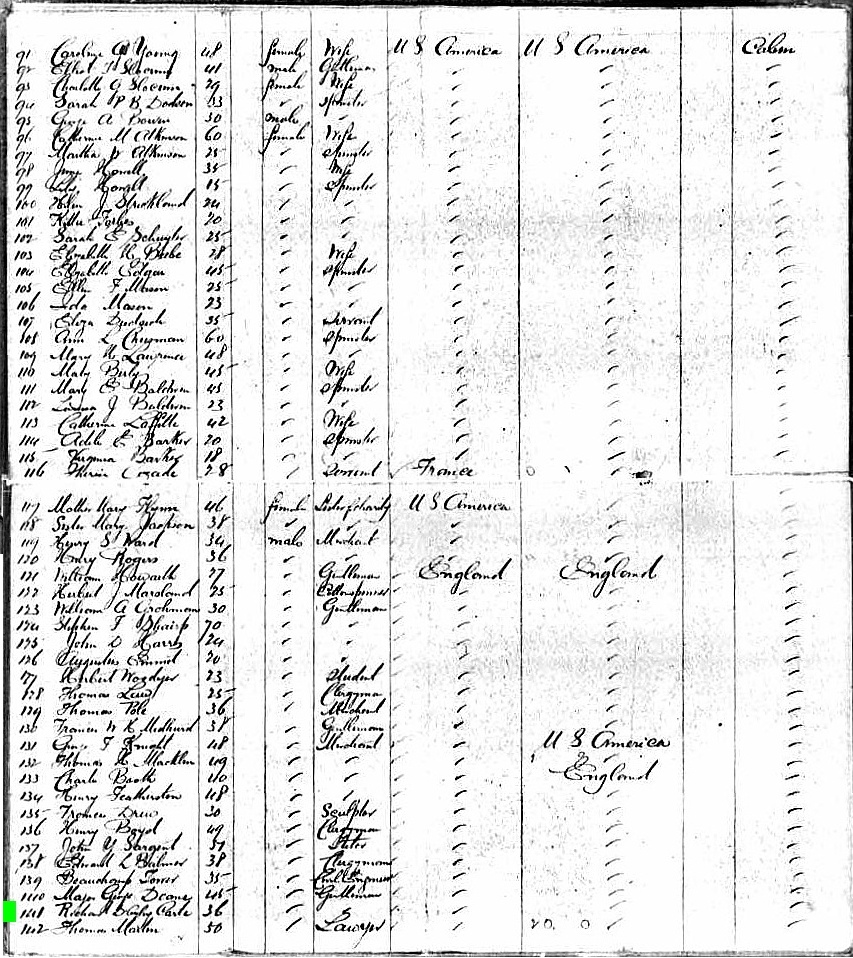 91 Caroline A Young 48 female Wife U S America U S America Cabin
92 41 male Gentleman
93 Charlotte G 29 female Wife
94 Sarah P B Dodson 33 Spinster
95 George A Bowen 30 male
96 Catherine M Atkinson 60 female Wife
97 Martha Atkinson 25 Spinster
98 Howell 35 Wife
99 Howell 15 Spinster
100 Helen J Strickland 24
101 Kittie Forbes 20
102 Sarah E Schuyler 25
103 Elizabeth H Beebe 28 Wife
104 Elizabeth Edgar 45 Spinster
105 Ellen F Mason 25
106 Ida Mason 23
107 Eliza 35 Servant
108 Ann L Chapman 60 Spinster
109 Mary Lawrence 48
110 Mary 45 Wife
111 Mary E Baldwin 45 Spinster
112 J Baldwin 23
113 Catherine Laffitte 42 Wife
114 Adele E Barker 20 Spinster
115 Virginia Barker 18
116 28 Servant France
117 Mother Mary Flynn 46 female Sister of charity U S America
118 Sister Mary Jackson 38
119 Henry S Ward 34 male Merchant
120 Henry Rogers 36
121 William Howarth 27 Gentleman England England
122 Herbert J Marsland 25 Cottonspinner
123 William A Grohman 30 Gentleman
124 Stephen F 70
125 John D Harris 24
126 Augustus 20
127 Herbert 23 Student
128 Thomas 25 Clergyman
129 Thomas Pole 36 Merchant
130 Francis W K 38 Gentleman
131 George F 48 Merchant U S America
132 Thomas H Macklin 49
133 Charles Booth 40 England
134 Henry Featherston 48
135 Drew 30 Sculptor
136 Henry Boyd 49 Clergyman
137 John Y Sargent 51
138 Edward L 38 Clergyman
139 Beauchamp Tower 35 Civil Engineer
140 Major George Deane 45 Gentleman
141 Richard Carte 36
142 Thomas Martin 50 Lawyer